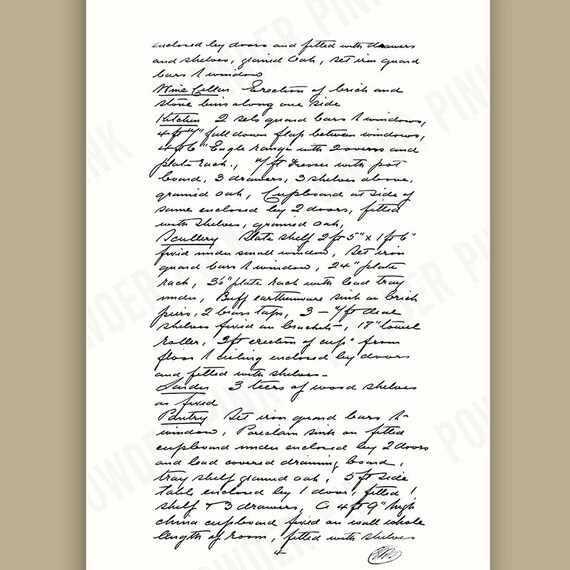 enclosed by doors and fitted with drawers
and shelves, grained oak, set iron guard
bars 1 window
Wine Cellar Erection of brick and
stone bins along one side
Kitchen 2 sets guard bars 2 windows,
4ft 7" fall down flap between windows,
4ft 6" Eagle range with 2 ovens and
plate rack, 7ft Dresser with pot
board, 3 drawers, 3 shelves above,
grained oak, Cupboard at side of
same enclosed by 2 doors, fitted
with shelves, grained oak,
Scullery Slate shelf 2ft 5" x 1ft 6"
fixed under small window, set iron
guard bars 1 window, 24" plate
rack, 36" plate rack with lead tray
under, Buff earthenware sink on brick
piers, 2 brass taps, 3 - 7ft deal
shelves fixed on brackets, 18" towel
roller, 2ft erection of cupd from
floor to ceiling enclosed by doors
and fitted with shelves -
Larder 3 tiers of wood shelves
as fixed
Pantry Set iron guard bars 1-
window, Porcelain sink on fitted
cupboard under enclosed by 2 doors
and lead covered draining board,
tray shelf grained oak, 5ft side
table enclosed by 1 door, fitted 1
shelf & 3 drawers, A 4ft 9" high
china cupboard fixed on wall whole
length of room, fitted with shelves
POWDER PINK